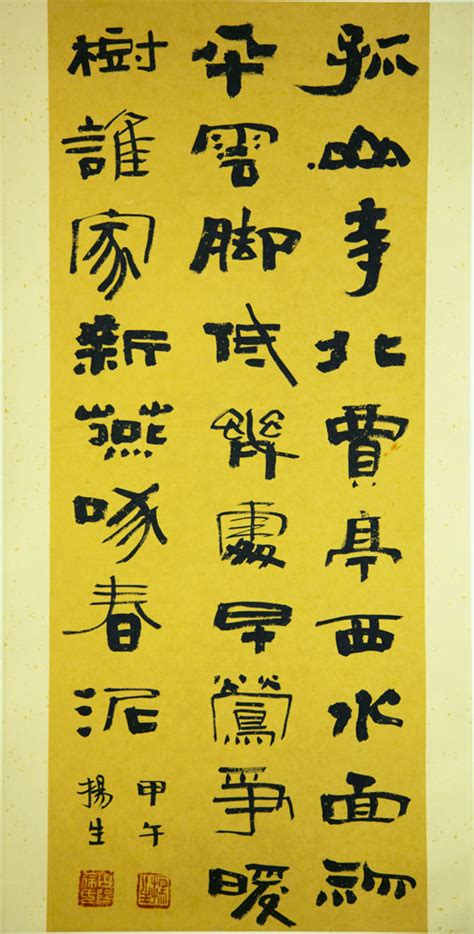 孤山寺北賈亭西水面初
平雲脚低幾處早鶯爭暖
樹誰家新燕啄春泥
甲午
揚生